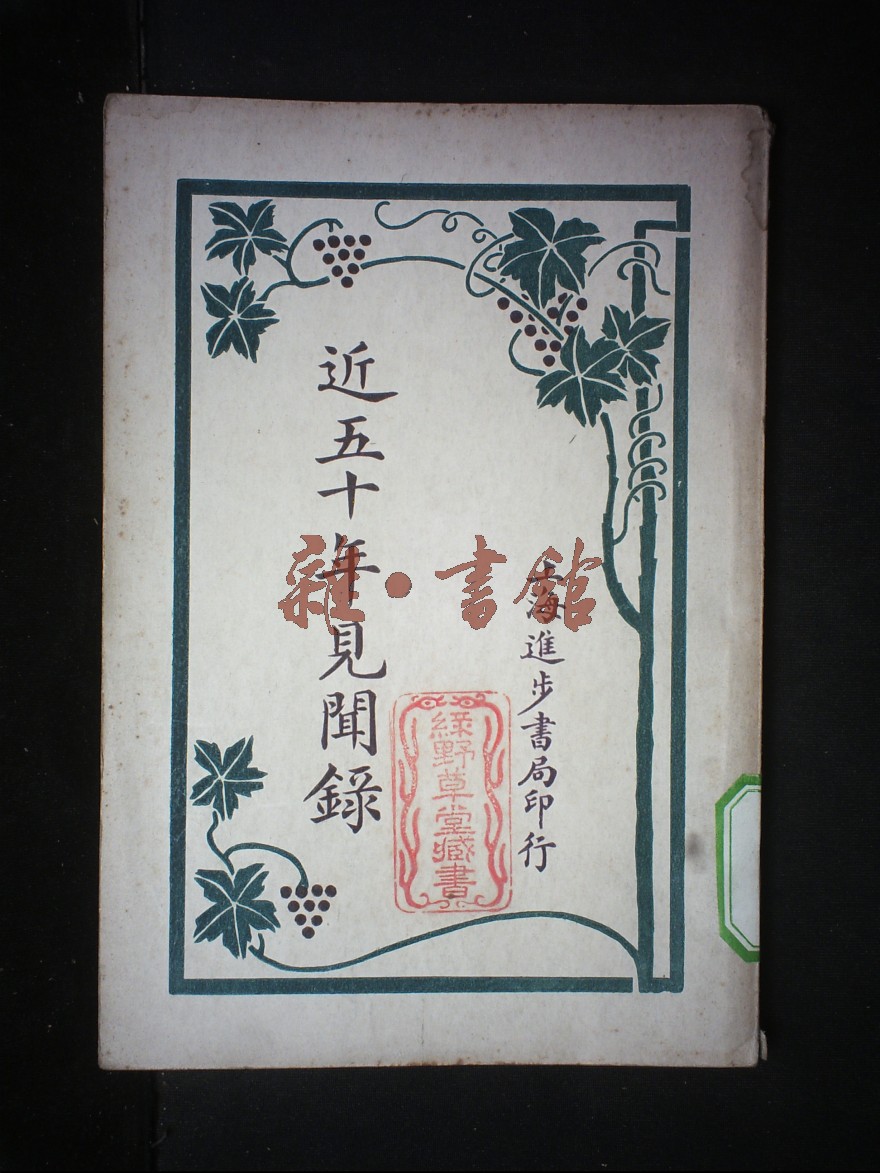 上海進步書局印行
近五十年見聞錄
綠野草堂藏書
雜·書館